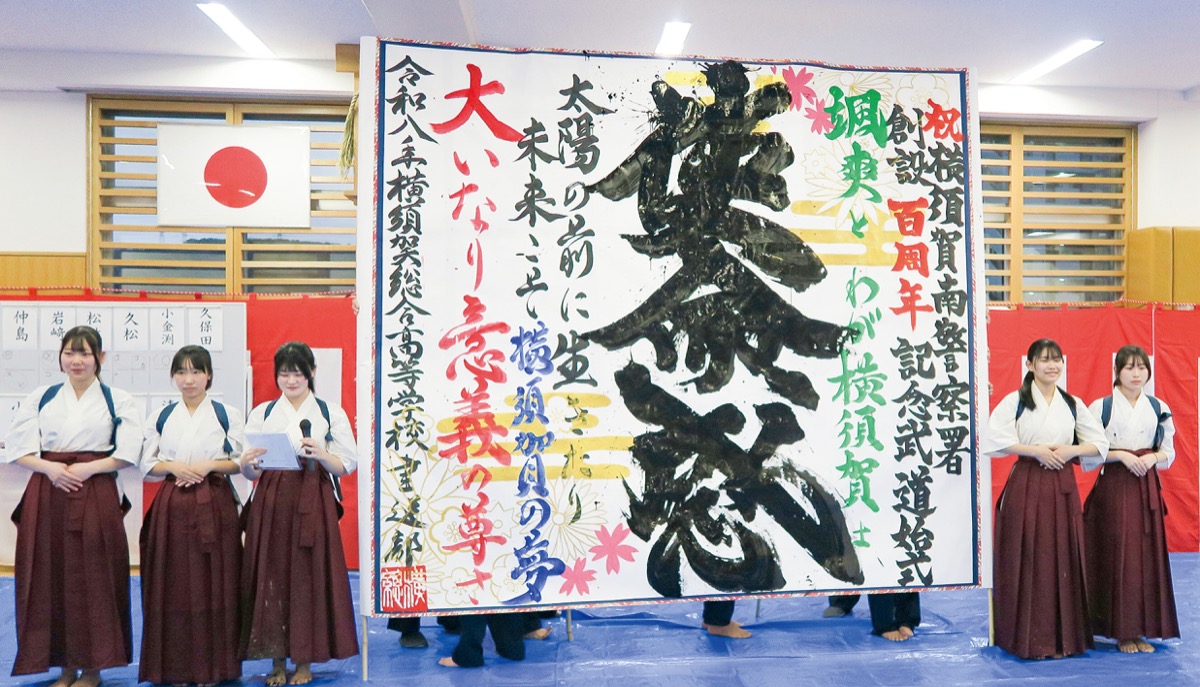 祝横須賀南警察署
創設百周年記念武道始式
颯爽とわが横須賀
使命感
太陽の前に生きたり
未来
横須賀の夢
大いなり意義の尊さ
令和八年横須賀総合高等学校書道部
横総
久保田
小金渕
久松
岩崎
仲島